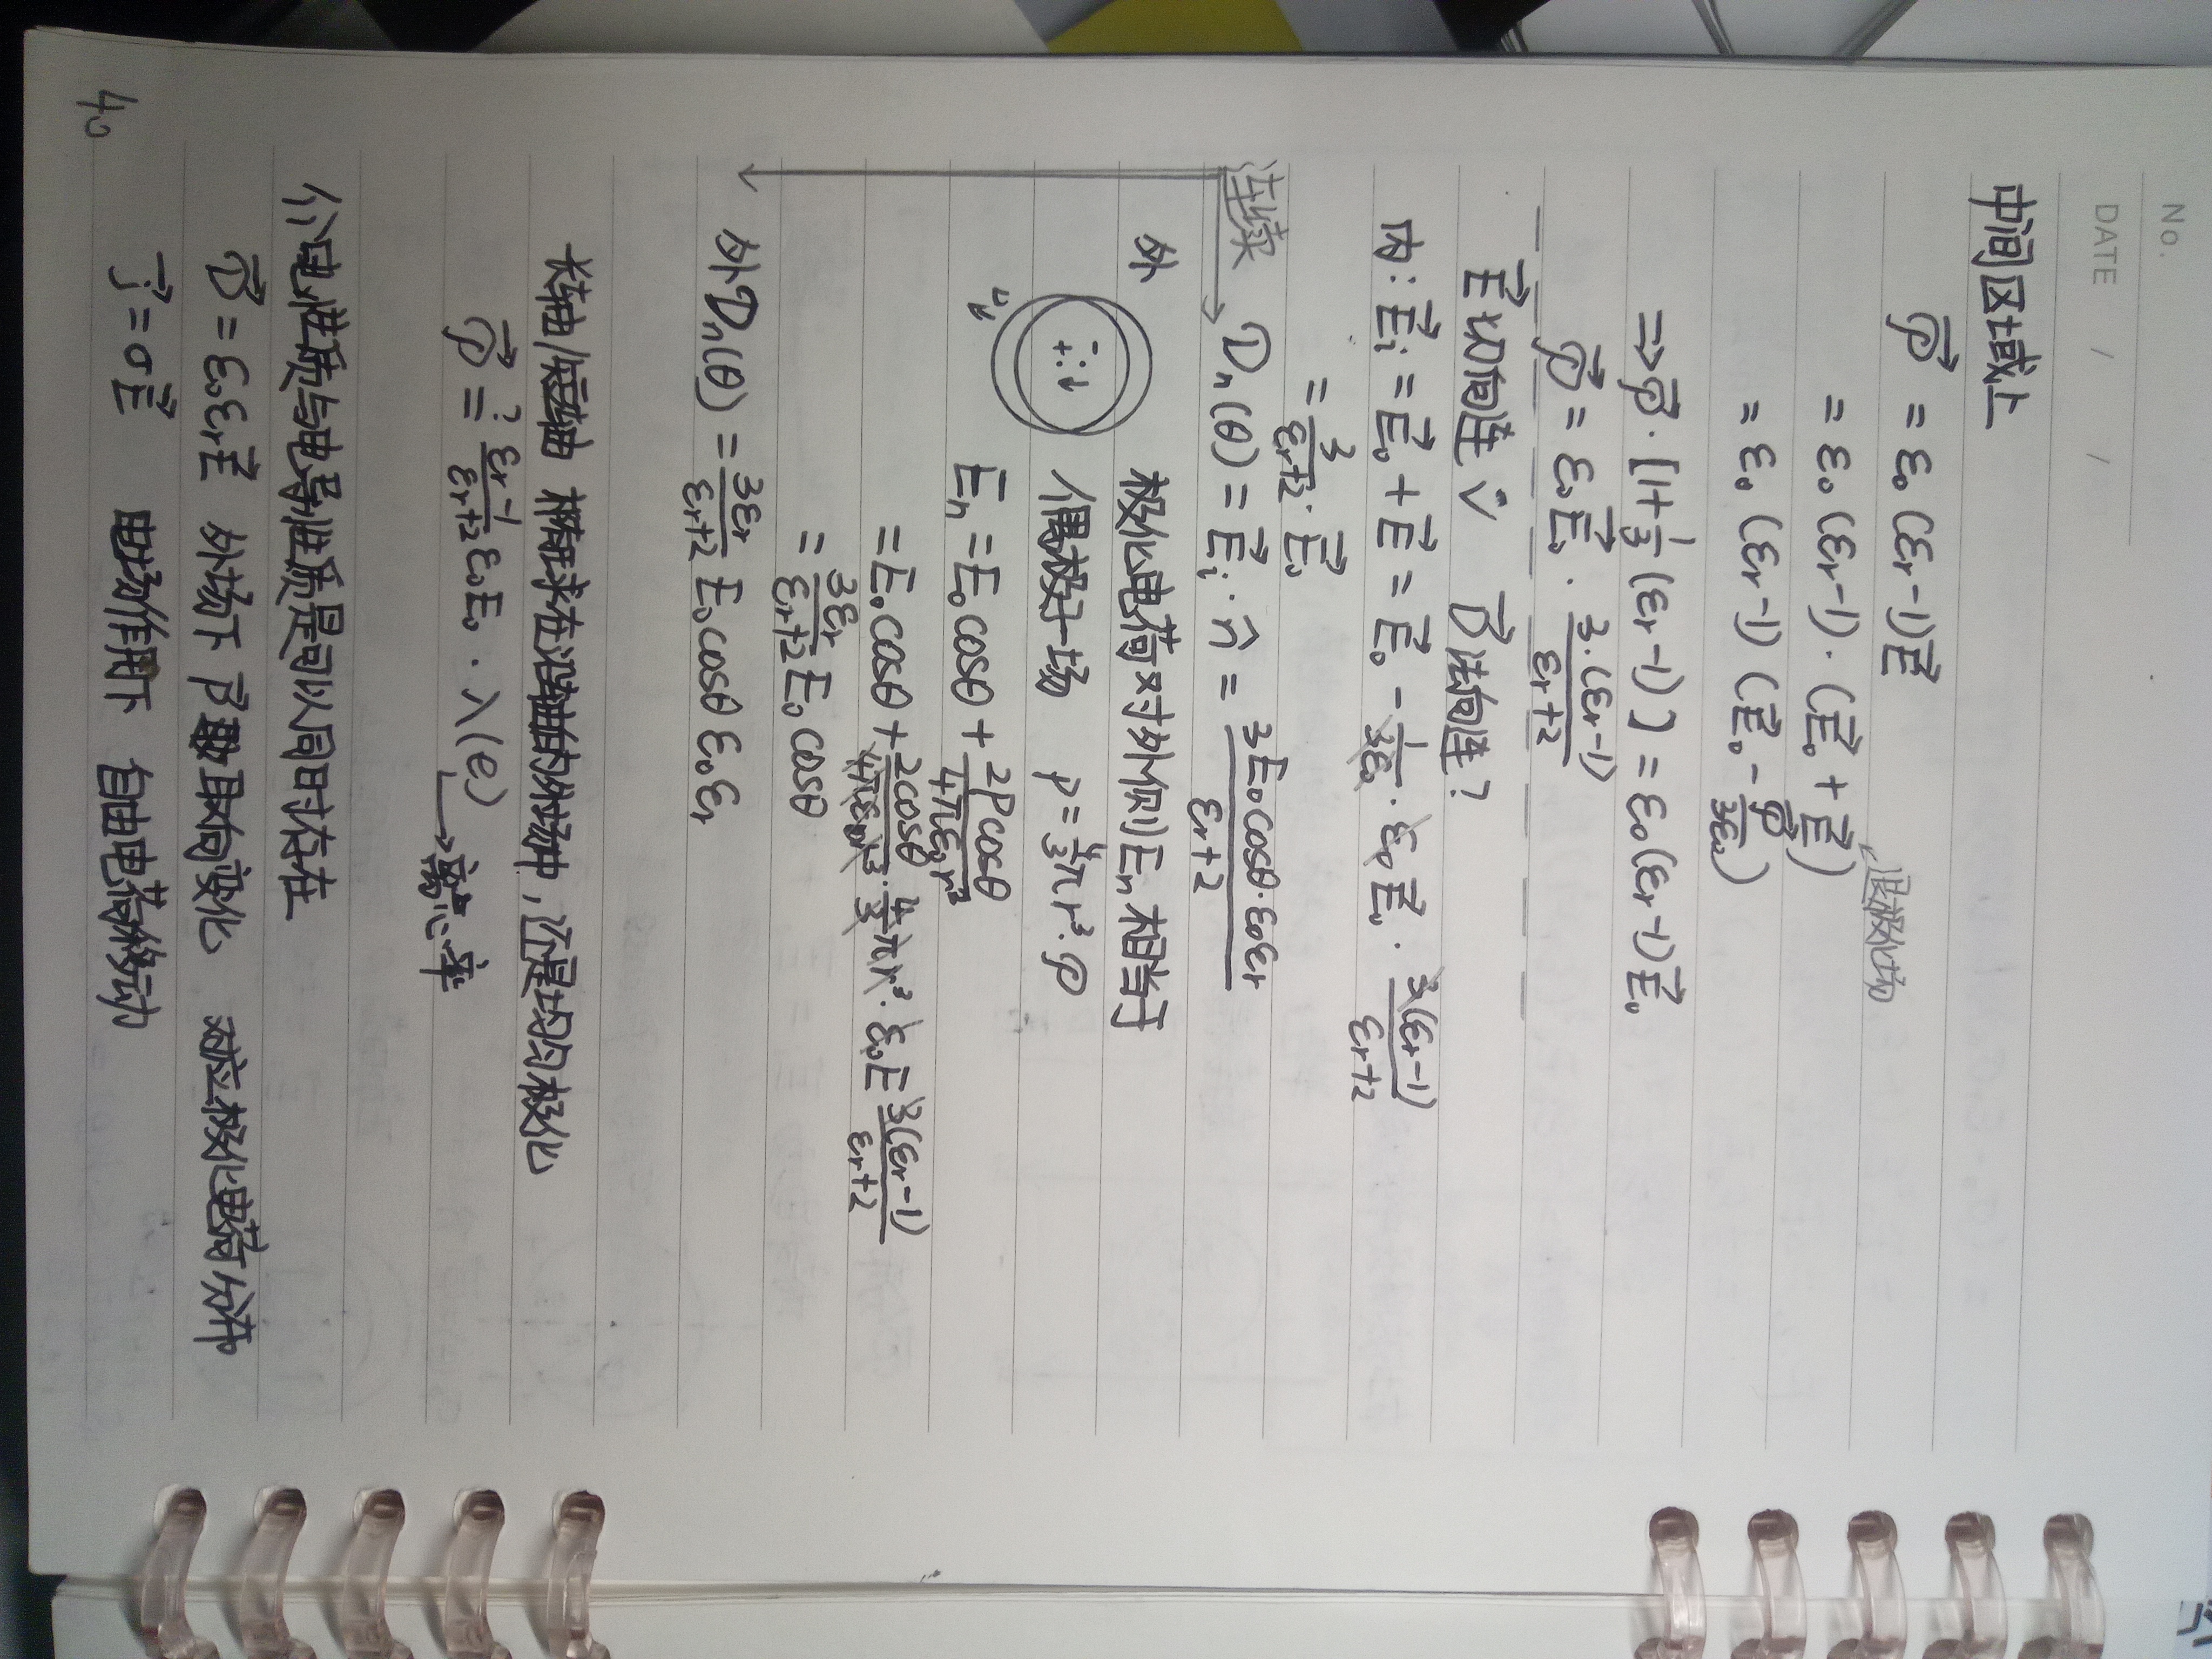 No.
DATE / /
中间区域上
$\vec{P} = \varepsilon_0 (\varepsilon_r - 1)\vec{E}$
$= \varepsilon_0 (\varepsilon_r - 1) \cdot (\vec{E}_0 + \vec{E})$ 退极化场
$= \varepsilon_0 (\varepsilon_r - 1)(\vec{E}_0 - \frac{\vec{P}}{3\varepsilon_0})$
$\Rightarrow \vec{P} \cdot [1 + \frac{1}{3}(\varepsilon_r - 1)] = \varepsilon_0(\varepsilon_r - 1)\vec{E}_0$
$\vec{P} = \varepsilon_0 \vec{E}_0 \cdot \frac{3 \cdot (\varepsilon_r - 1)}{\varepsilon_r + 2}$
$\vec{E}$切向连 √ $\vec{D}$法向连?
内: $\vec{E}_i = \vec{E}_0 + \vec{E} = \vec{E}_0 - \frac{1}{3\varepsilon_0} \cdot \varepsilon_0 \vec{E}_0 \cdot \frac{3(\varepsilon_r - 1)}{\varepsilon_r + 2}$
$= \frac{3}{\varepsilon_r + 2} \cdot \vec{E}_0$
连续 $D_n(\theta) = \vec{E}_i \cdot \hat{n} = \frac{3E_0 \cos\theta \cdot \varepsilon_0 \varepsilon_r}{\varepsilon_r + 2}$
外 极化电荷对外侧$E_n$相当于
偶极子场 $p = \frac{4}{3}\pi r^3 \cdot P$
$E_n = E_0 \cos\theta + \frac{2P\cos\theta}{4\pi\varepsilon_0 r^3}$
$= E_0 \cos\theta + \frac{2\cos\theta}{4\pi\varepsilon_0 r^3} \cdot \frac{4}{3}\pi r^3 \cdot \varepsilon_0 E \frac{3(\varepsilon_r - 1)}{\varepsilon_r + 2}$
$= \frac{3\varepsilon_r}{\varepsilon_r + 2} E_0 \cos\theta$
外 $D_n(\theta) = \frac{3\varepsilon_r}{\varepsilon_r + 2} E_0 \cos\theta \varepsilon_0 \varepsilon_r$
长轴/短轴 椭球在沿轴的外场中,还是均匀极化
$\vec{P} \overset{?}{=} \frac{\varepsilon_r - 1}{\varepsilon_r + 2} \varepsilon_0 E_0 \cdot \lambda(e)$ → 离心率
介电性质与电导性质是可以同时存在
$\vec{D} = \varepsilon_0 \varepsilon_r \vec{E}$ 外场下 $\vec{P}$ 取向变化 对应极化电荷分布
$\vec{j} = \sigma\vec{E}$ 电场作用下 自由电荷移动
40